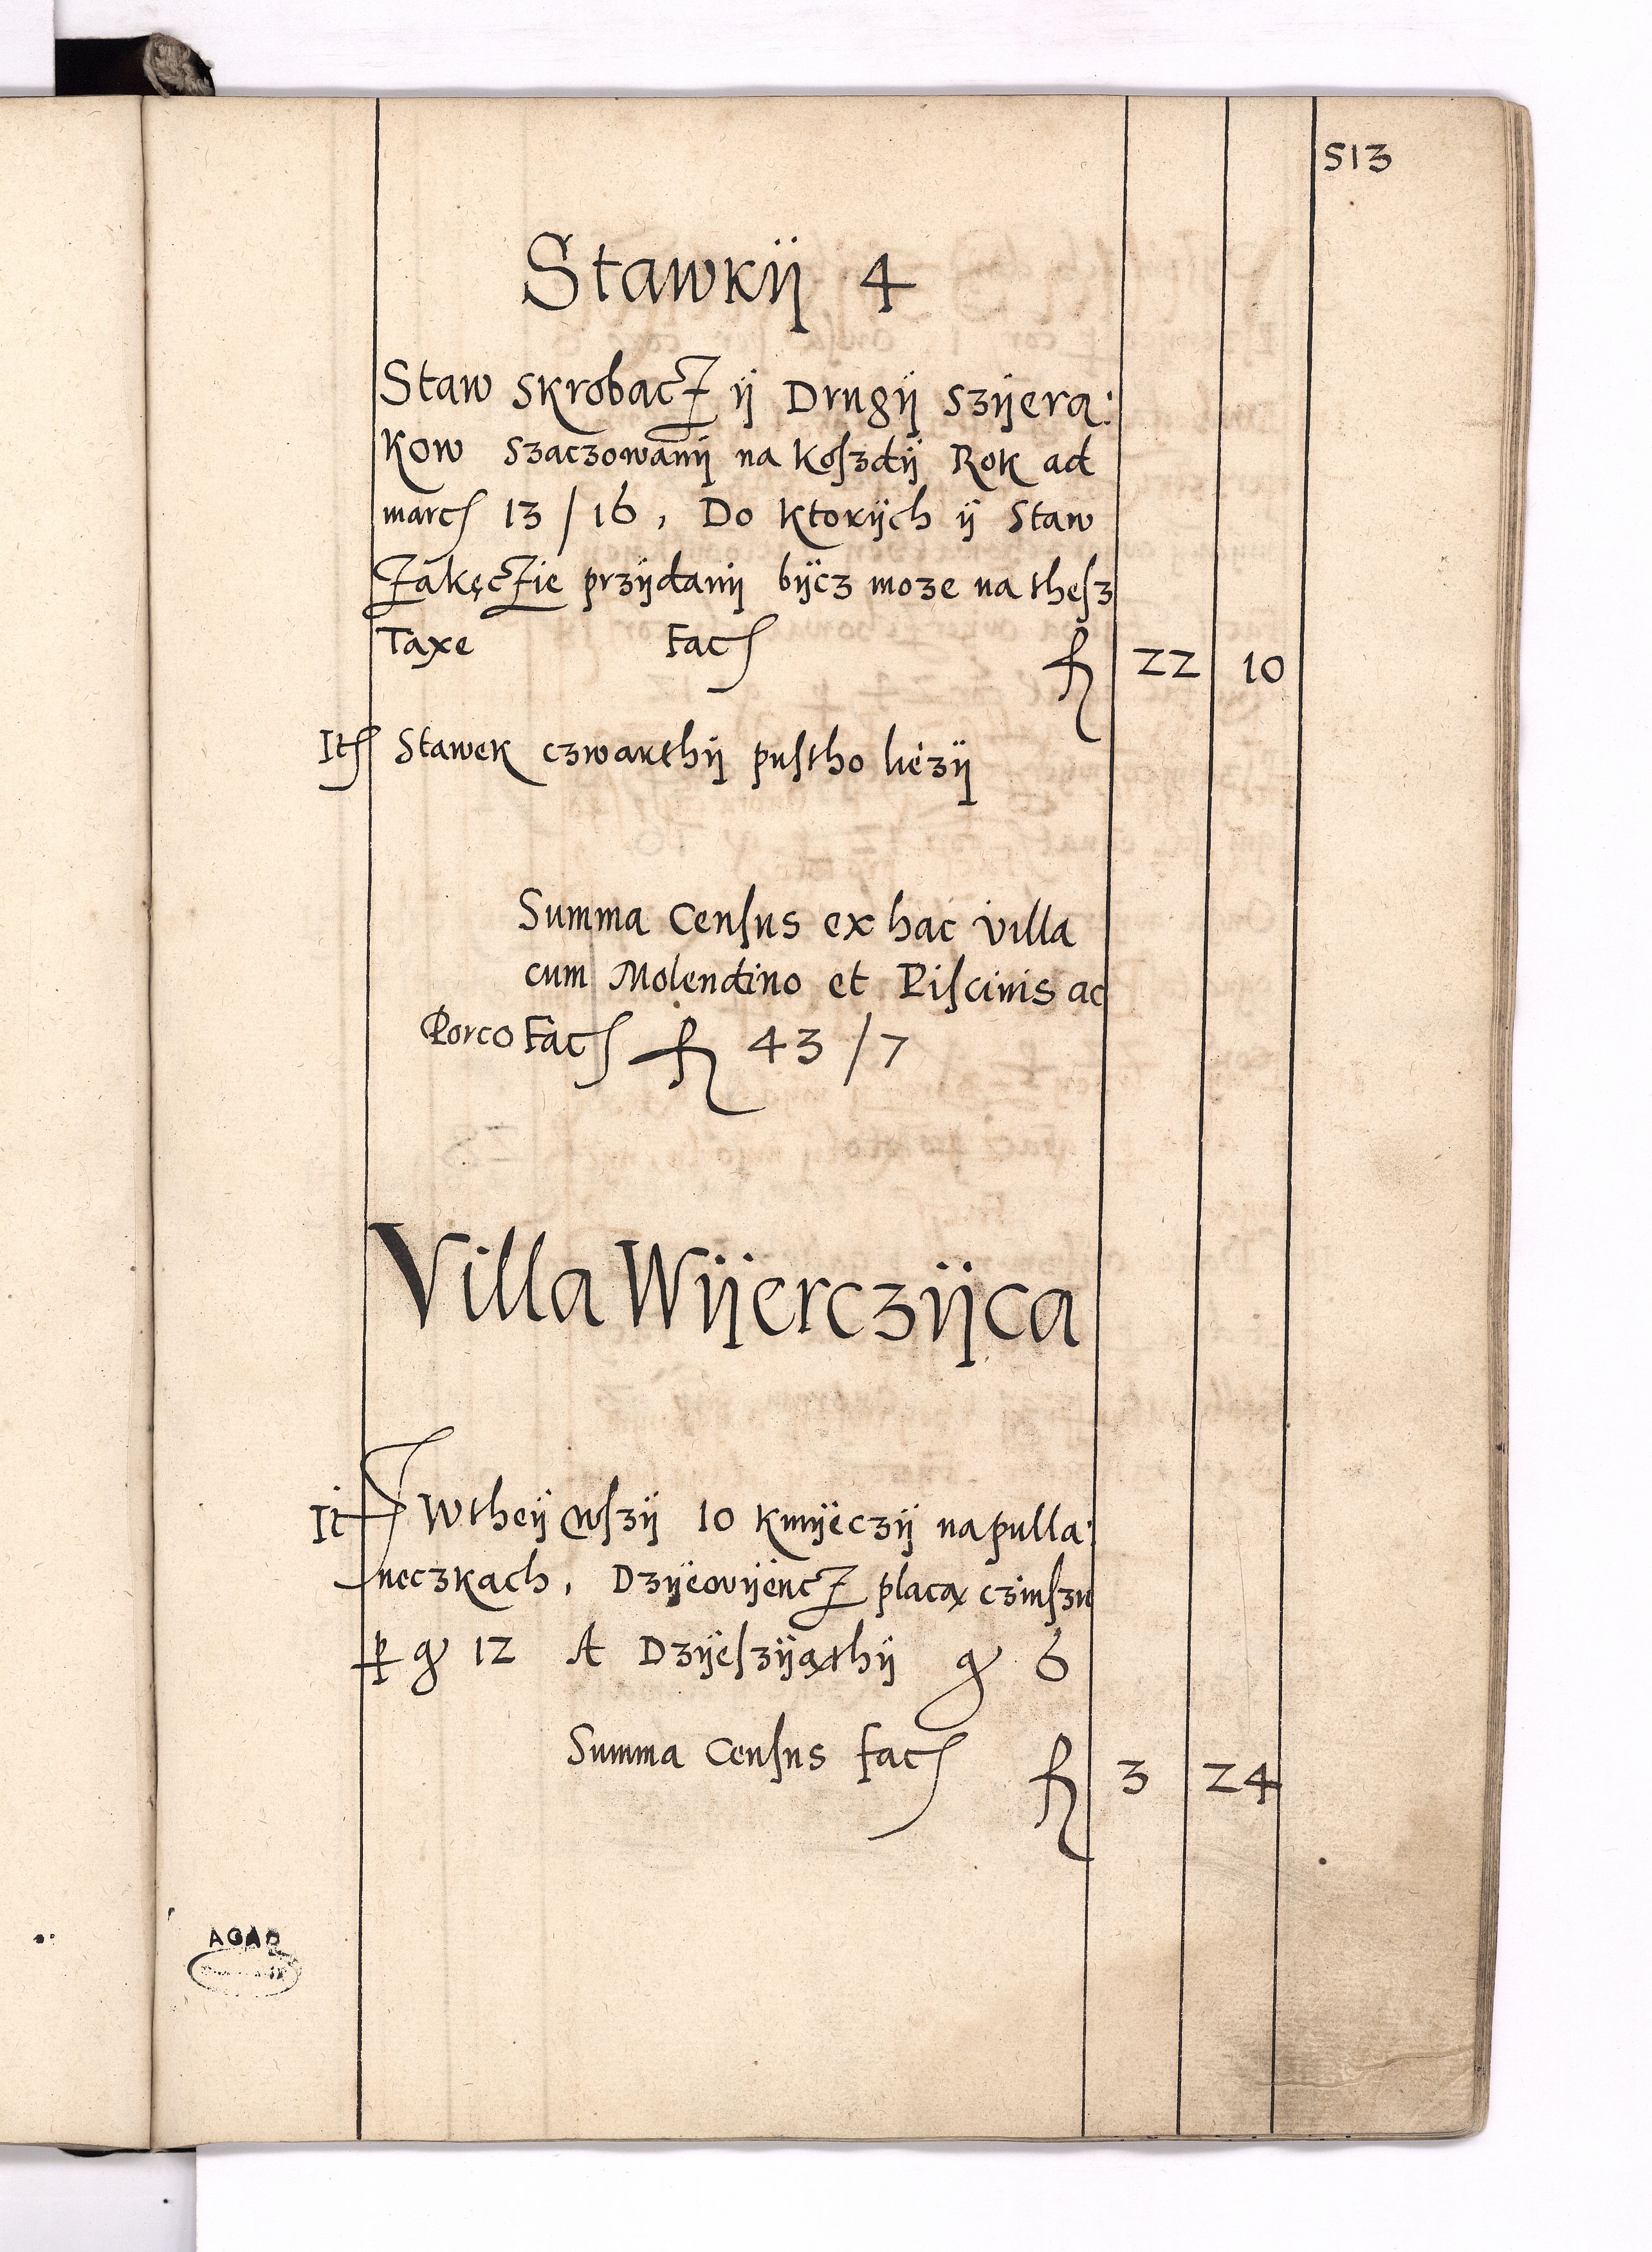 513
Stawkÿ 4
Staw Skrobacz ÿ Drugÿ Szÿera:
kow szaczowanÿ na koſzdÿ Rok ad
marc 13 / 16, Do ktorÿch ÿ Staw
Zakęczie przÿdanÿ bÿcz moze na theſz
Taxe Fac fl 22 10
It Stawek czwarthÿ puſtho liezÿ
Summa Cenſus ex hac villa
cum Molendino et Piſcinis ac
Porco Fac fl 43 / 7
Villa Wÿerczÿca
It Wtheÿ wſzÿ 10 kmÿeczÿ na pulla:
neczkach, Dzÿevÿencz placą czinſzu
p gr 12 A Dzÿeſzÿąthÿ gr 6
Summa Cenſus fac fl 3 24
AGAD